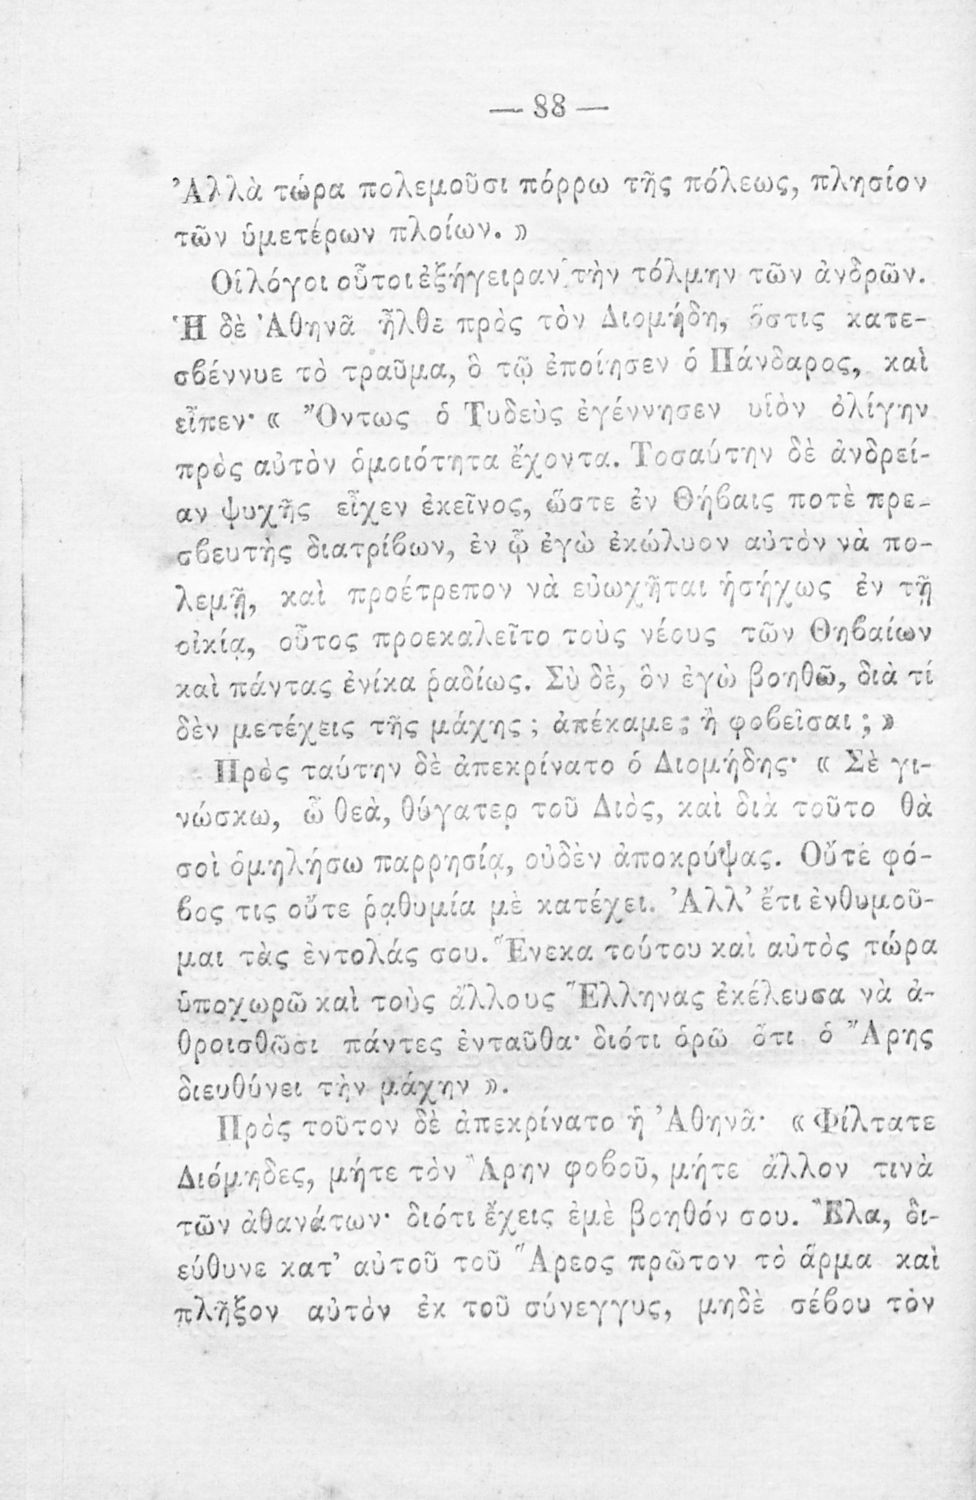 — 88 —
Ἀλλὰ τώρα πολεμοῦσι πόρρω τῆς πόλεως, πλησίον
τῶν ὑμετέρων πλοίων. »
Οἱ λόγοι οὗτοι ἐξήγειραν τὴν τόλμην τῶν ἀνδρῶν.
Ἡ δὲ Ἀθηνᾶ ἦλθε πρὸς τὸν Διομήδη, ὅστις κατε-
σβέννυε τὸ τραῦμα, ὃ τῷ ἐποίησεν ὁ Πάνδαρος, καὶ
εἶπεν· « Ὄντως ὁ Τυδεὺς ἐγέννησεν υἱὸν ὀλίγην
πρὸς αὐτὸν ὁμοιότητα ἔχοντα. Τοσαύτην δὲ ἀνδρεί-
αν ψυχῆς εἶχεν ἐκεῖνος, ὥστε ἐν Θήβαις ποτὲ πρε-
σβευτὴς διατρίβων, ἐν ᾧ ἐγὼ ἐκώλυον αὐτὸν νὰ πο-
λεμῇ, καὶ προέτρεπον νὰ εὐωχῆται ἡσήχως ἐν τῇ
οἰκίᾳ, οὗτος προεκαλεῖτο τοὺς νέους τῶν Θηβαίων
καὶ πάντας ἐνίκα ῥαδίως. Σὺ δὲ, ὃν ἐγὼ βοηθῶ, διὰ τί
δὲν μετέχεις τῆς μάχης ; ἀπέκαμες ἢ φοβεῖσαι ; »
Πρὸς ταύτην δὲ ἀπεκρίνατο ὁ Διομήδης· « Σὲ γι-
νώσκω, ὦ θεὰ, θύγατερ τοῦ Διὸς, καὶ διὰ τοῦτο θὰ
σοὶ ὁμηλήσω παρρησίᾳ, οὐδὲν ἀποκρύψας. Οὔτε φό-
βος τις οὔτε ῥᾳθυμία μὲ κατέχει. Ἀλλ' ἔτι ἐνθυμοῦ-
μαι τὰς ἐντολάς σου. Ἕνεκα τούτου καὶ αὐτὸς τώρα
ὑποχωρῶ καὶ τοὺς ἄλλους Ἕλληνας ἐκέλευσα νὰ ἀ-
θροισθῶσι πάντες ἐνταῦθα· διότι ὁρῶ ὅτι ὁ Ἄρης
διευθύνει τὴν μάχην ».
Πρὸς τοῦτον δὲ ἀπεκρίνατο ἡ Ἀθηνᾶ· « Φίλτατε
Διόμηδες, μήτε τὸν Ἄρην φοβοῦ, μήτε ἄλλον τινὰ
τῶν ἀθανάτων· διότι ἔχεις ἐμὲ βοηθόν σου. Ἔλα, δι-
εύθυνε κατ' αὐτοῦ τοῦ Ἄρεος πρῶτον τὸ ἅρμα καὶ
πλῆξον αὐτὸν ἐκ τοῦ σύνεγγυς, μηδὲ σέβου τὸν